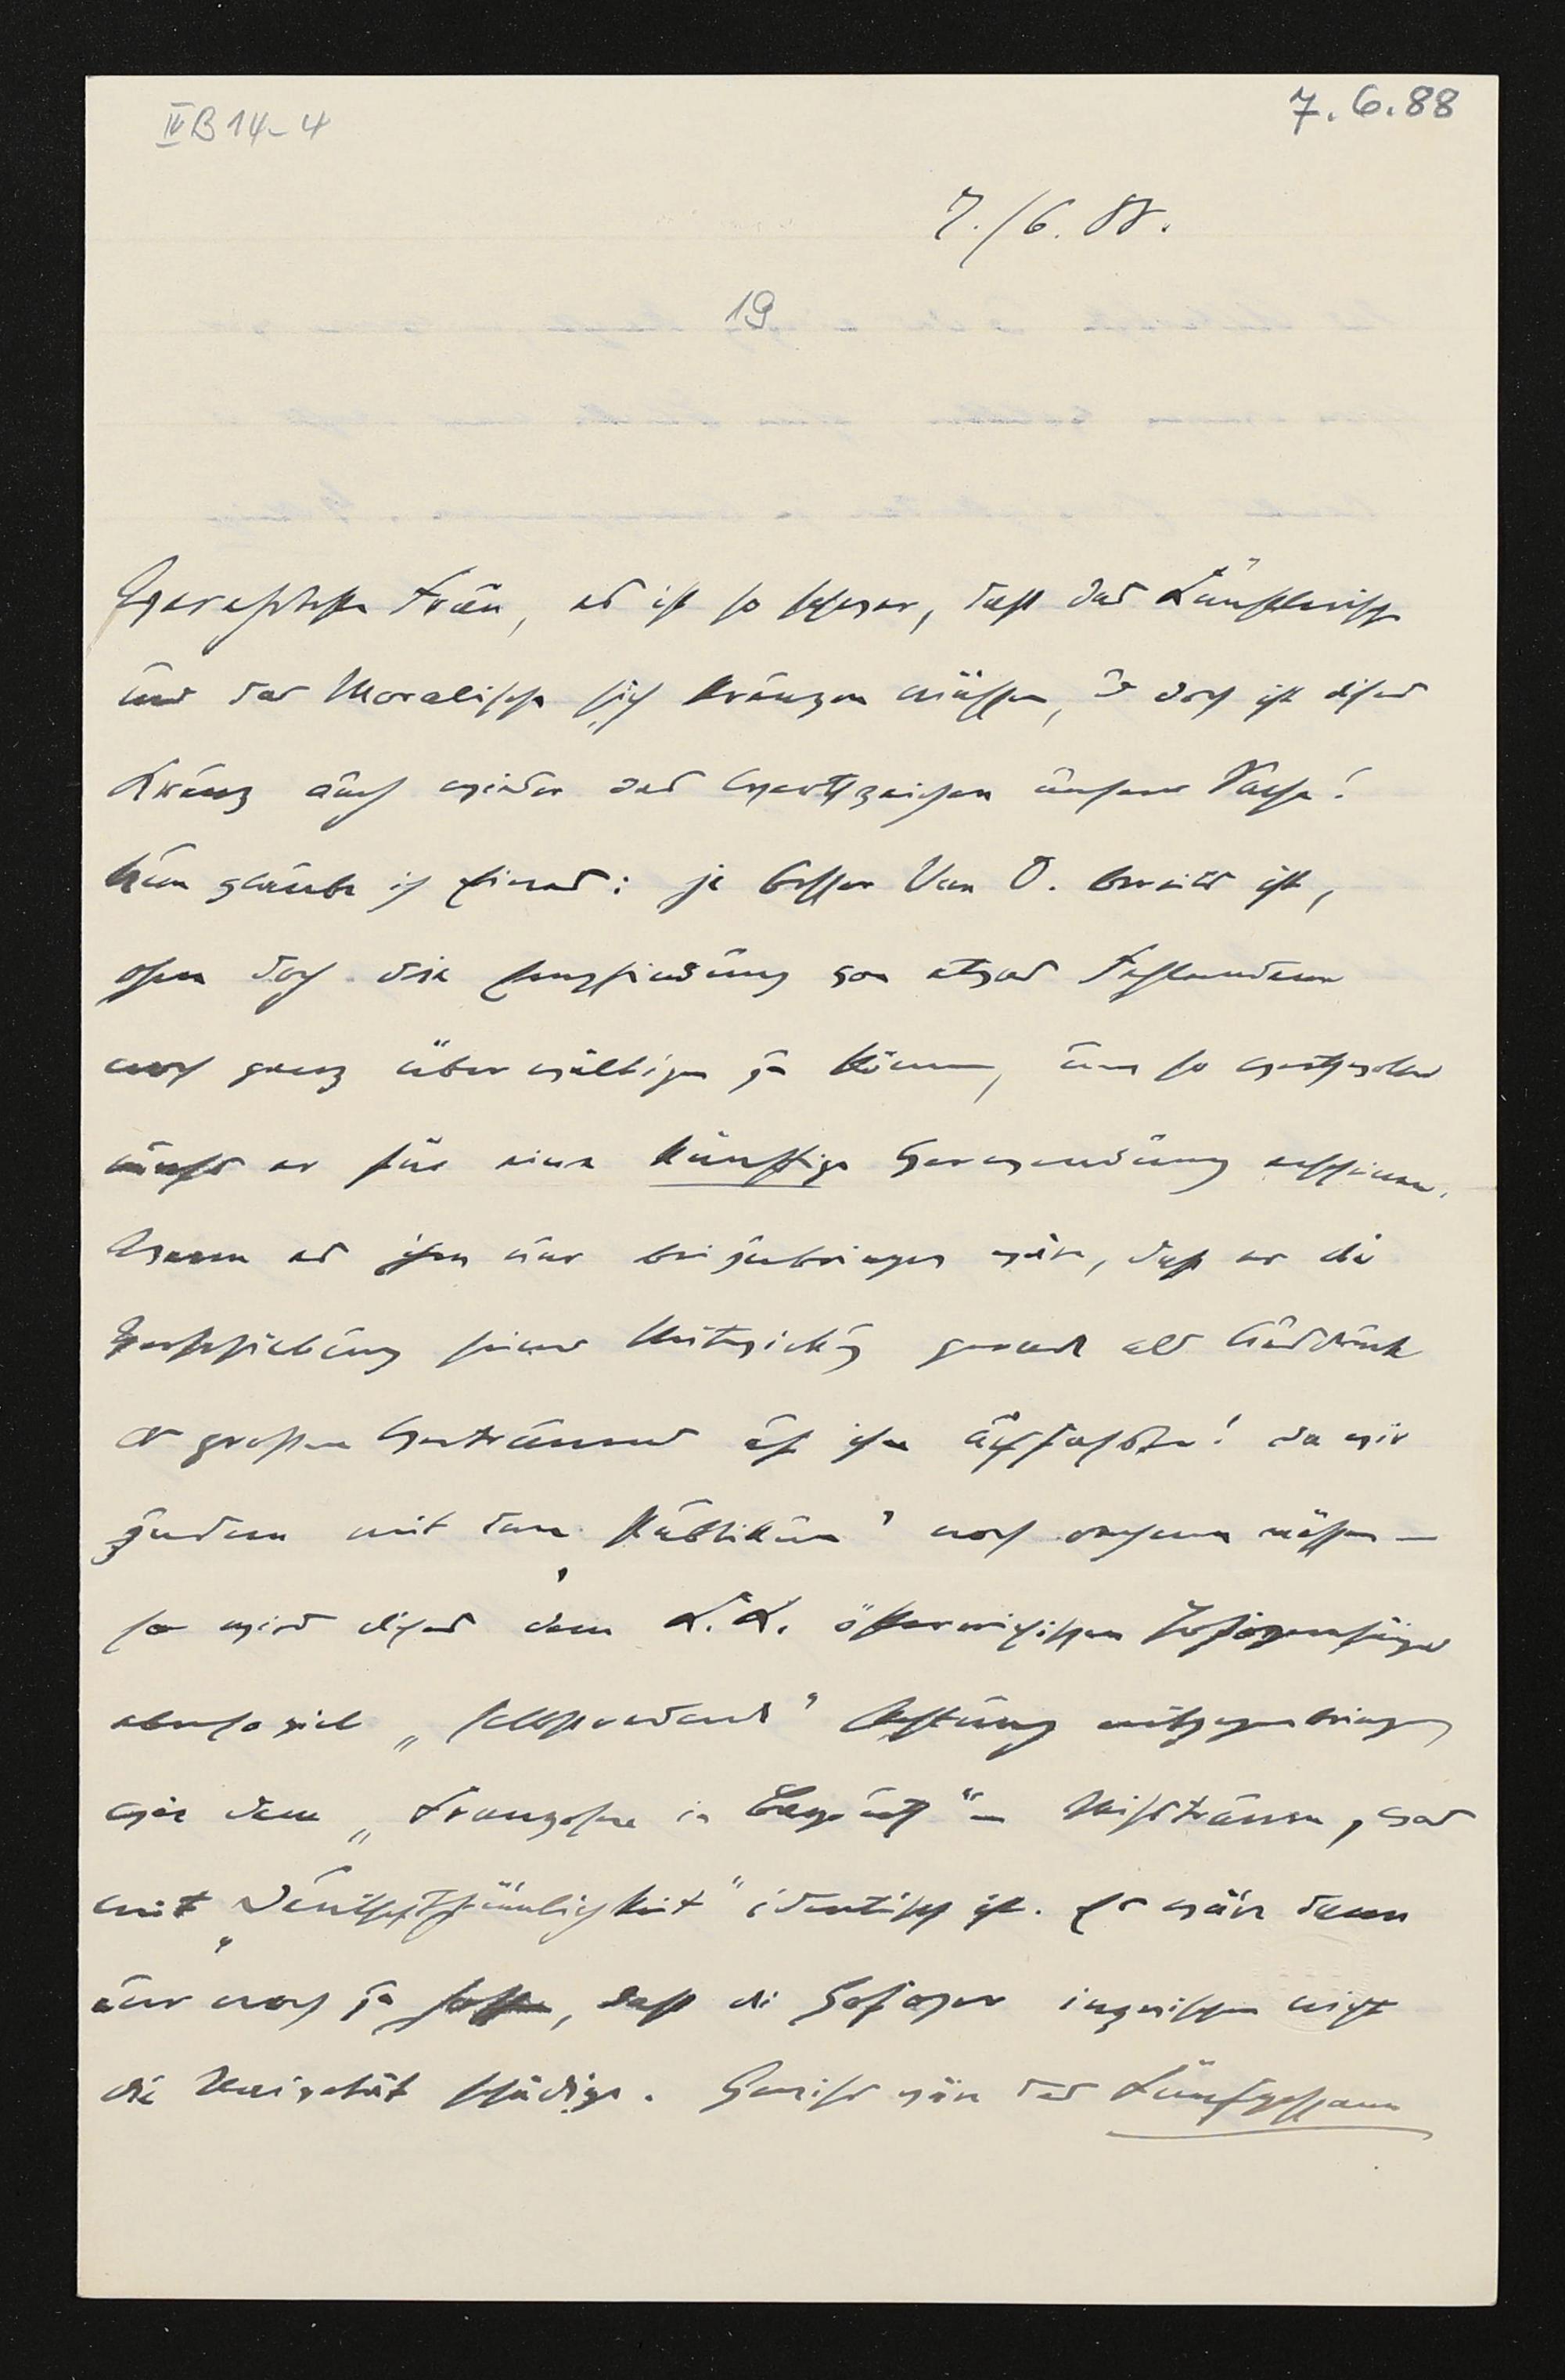 IV B 14-4
7.6.88
7./6. 88.
19
Verehrteste Frau, es ist so schwer, dass das Künstlerische
und das Moralische sich kreuzen müssen, u doch ist dieses
Kreuz auch wieder das Wertzeichen unserer Sache!
Nun glaube ich Eines: je besser Van D. bereits ist,
ohne doch die Empfindung von etwas Fehlendem
noch ganz überwältigen zu können, um so wertvoller
muss er für eine künftige Verwendung erscheinen.
Wenn es ihm nur beizubringen wäre, dass er die
Verschiebung seiner Mitwirkung gerade als Ausdruck
des grossen Vertrauens auf ihn auffasste! Da wir
zudem mit dem „Publikum" noch rechnen müssen —
so wird dieses dem K. K. österreichischen Hofopernsänger
ebensoviel „selbstredend" Achtung entgegenbringen
wie dem „Franzosen in Bayreuth" — Misstrauen, was
mit „Deutschthümlichkeit" identisch ist. Es wäre denn
nur noch zu hoffen, dass die Hofoper inzwischen nicht
die Naivetät schädige. Gewiss wäre das Kunstgesang